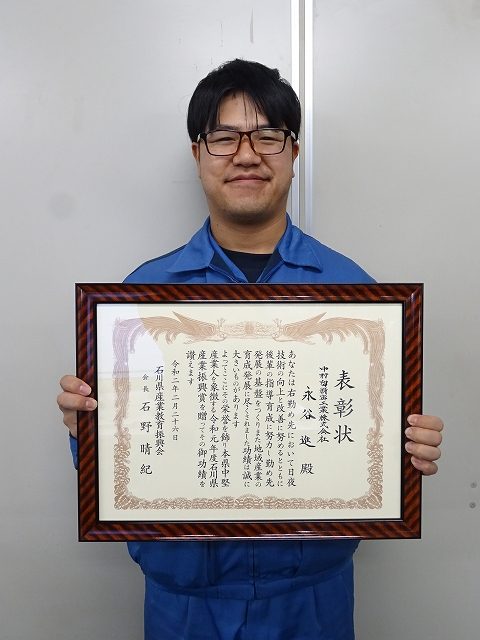 表彰状
中村留精密工業株式会社
永谷 進 殿
あなたは右勤め先において日夜
技術の向上と改善に努めるとともに
後輩の指導育成に努力し勤め先
発展の基盤をつくりまた地域産業の
育成発展に尽くされました功績は誠に
大きいものがあります
よってここにその栄誉を飾り本県中堅
産業人を象徴する令和元年度石川県
産業振興賞を贈ってその御功績を
讃えます
令和二年二月二十六日
石川県産業教育振興会
会長 石野晴紀